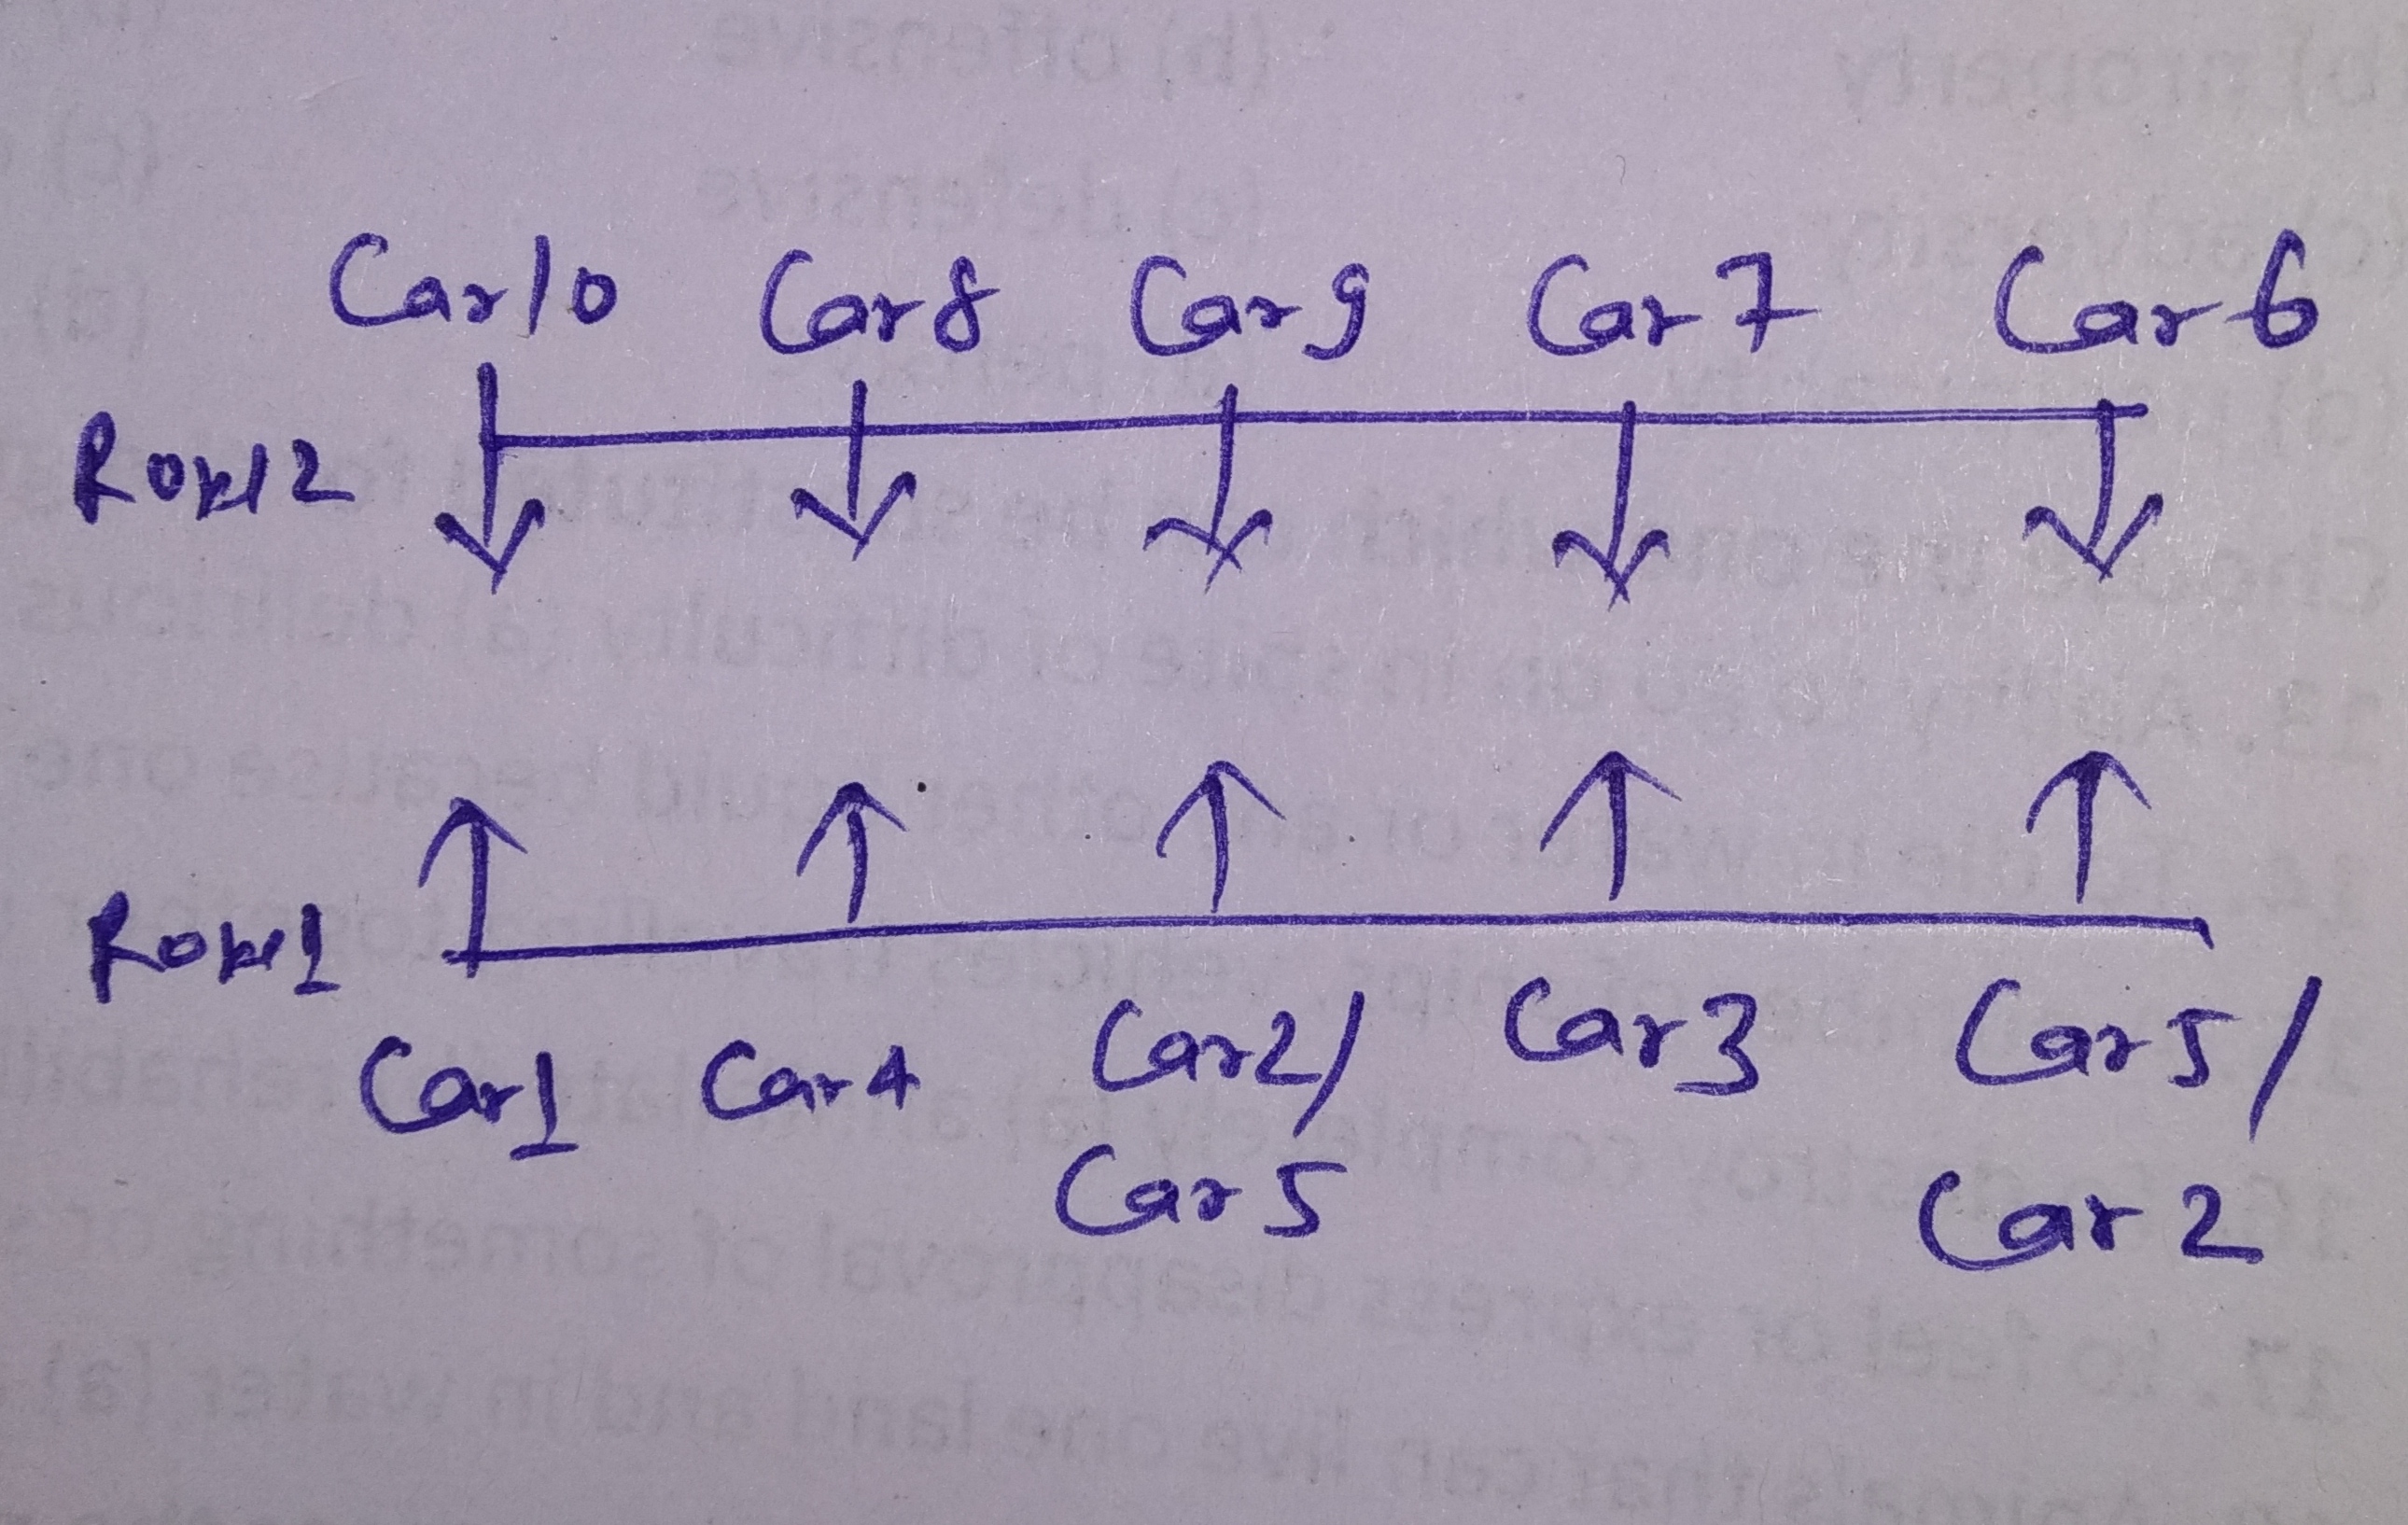 Car10 Car8 Car9 Car7 Car6
Row2
Row1
Car1 Car4 Car2/ Car3 Car5/
Car5 Car2